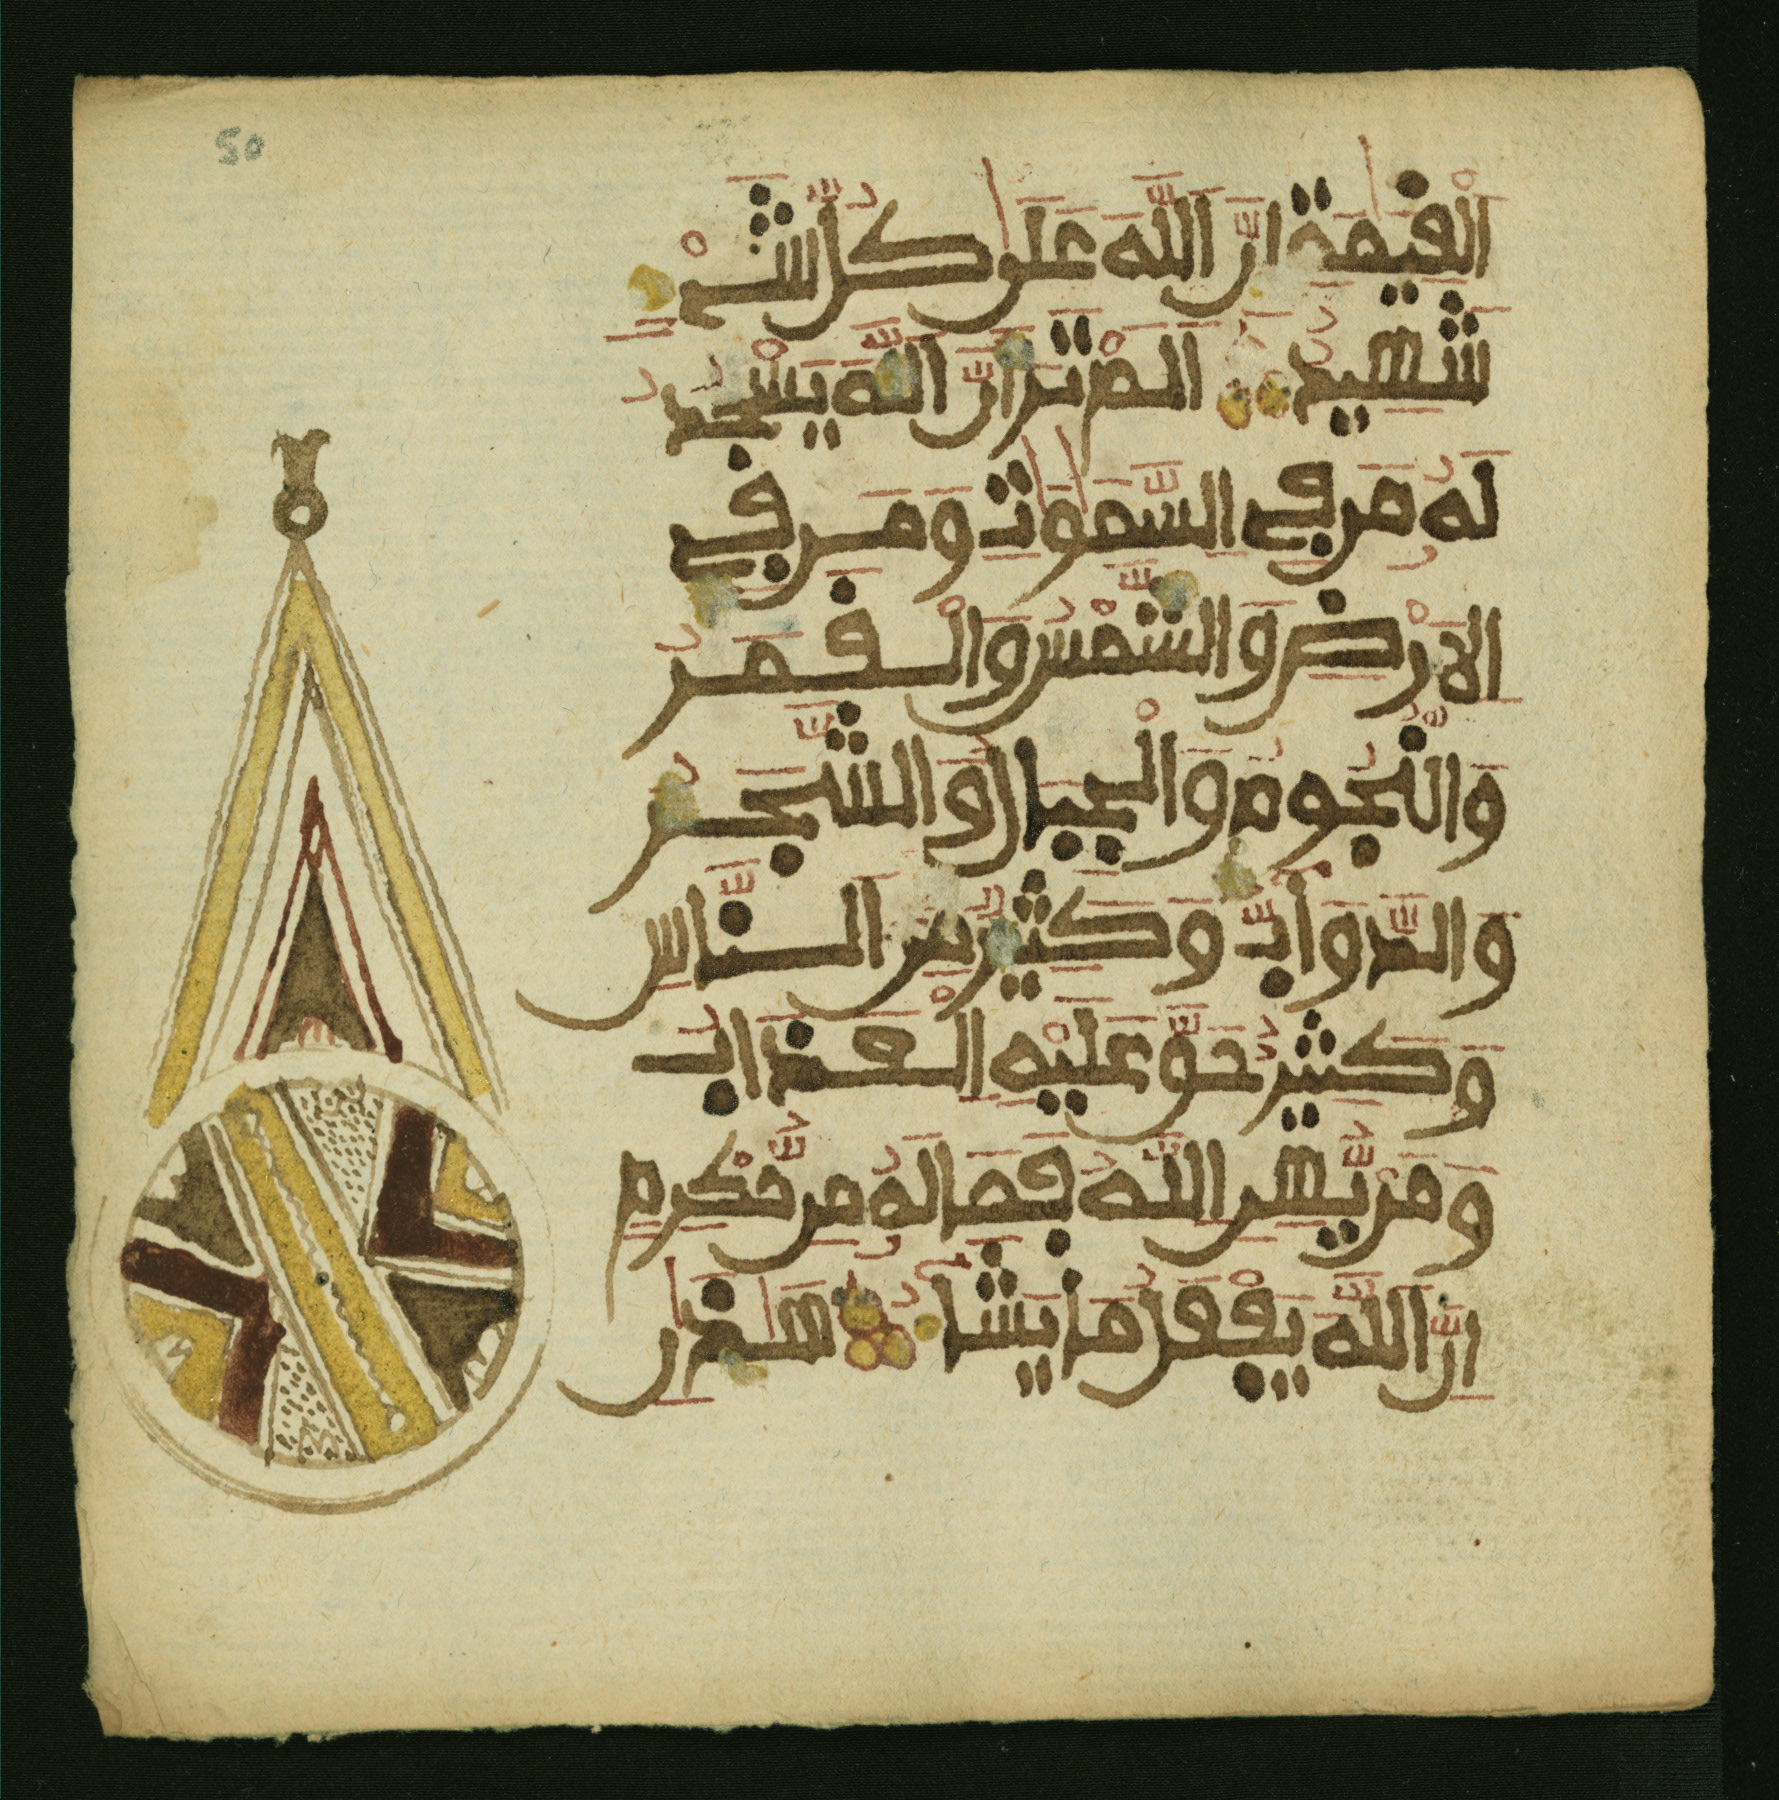 50
الْقِيَٰمَةِ إِنَّ اللَّهَ عَلَىٰ كُلِّ شَيْءٍ
شَهِيدٌ أَلَمْ تَرَ أَنَّ اللَّهَ يَسْجُدُ
لَهُ مَن فِي السَّمَٰوَٰتِ وَمَن فِي
الْأَرْضِ وَالشَّمْسُ وَالْقَمَرُ
وَالنُّجُومُ وَالْجِبَالُ وَالشَّجَرُ
وَالدَّوَآبُّ وَكَثِيرٌ مِّنَ النَّاسِ
وَكَثِيرٌ حَقَّ عَلَيْهِ الْعَذَابُ
وَمَن يُّهِنِ اللَّهُ فَمَا لَهُ مِن مُّكْرِمٍ
إِنَّ اللَّهَ يَفْعَلُ مَا يَشَآءُ هَٰذَٰنِ